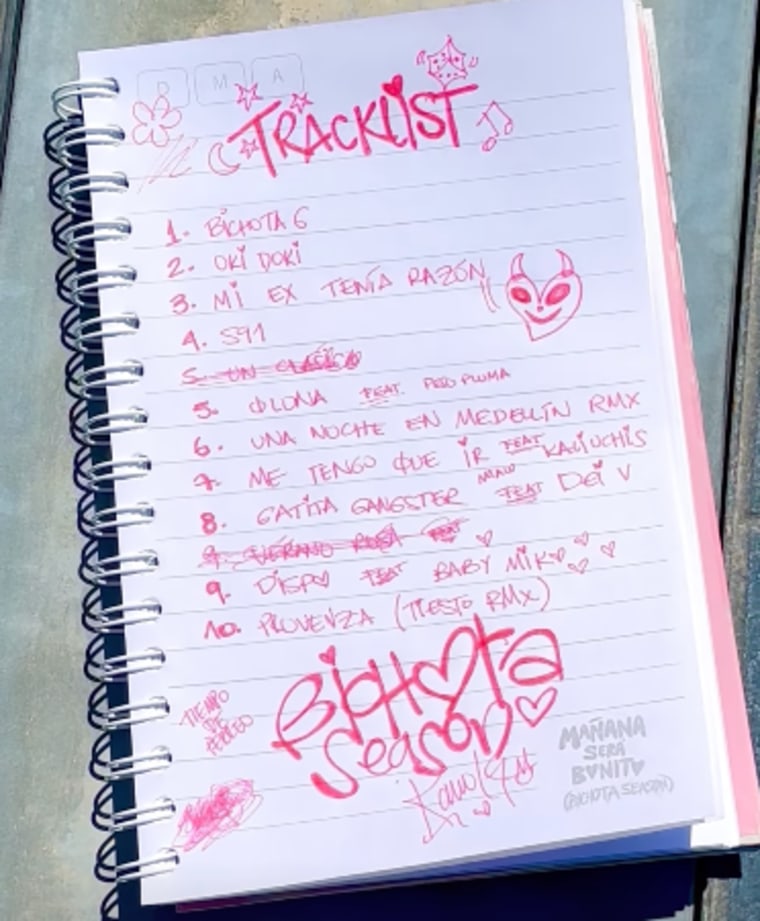 TRACKLIST
1. BICHOTA G
2. OKI DOKI
3. MI EX TENÍA RAZÓN
4. S91
5. UN CLÁSICO
5. QLONA FEAT. PESO PLUMA
6. UNA NOCHE EN MEDELLÍN RMX
7. ME TENGO QUE IR FEAT KALIUCHIS
8. GATITA GANGSTER FEAT DEI V
MIAU
9. VERANO ROSA FEAT
9. DISPO FEAT BABY MIKO
10. PROVENZA (TIESTO RMX)
BICHOTA
SEASON
TIEMPO
DE
PERREO
MAÑANA
SERÁ
BONITO
(BICHOTA SEASON)